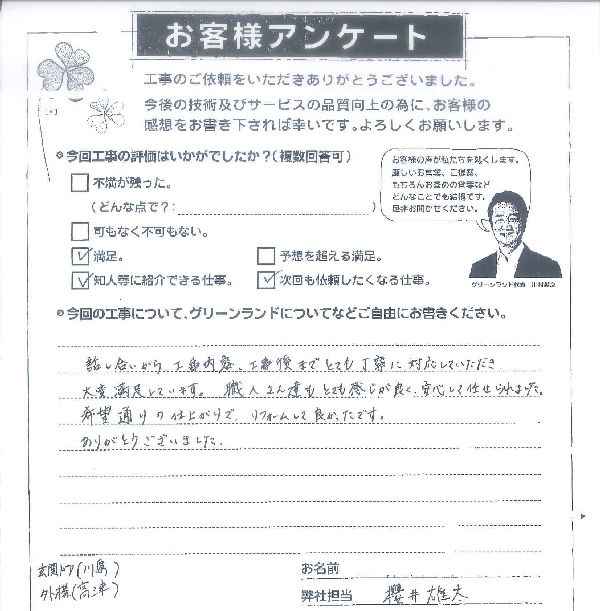 お客様アンケート
工事のご依頼をいただきありがとうございました。
今後の技術及びサービスの品質向上の為に、お客様の
感想をお書き下されば幸いです。よろしくお願いします。
今回工事の評価はいかがでしたか？（複数回答可）
不満が残った。
（どんな点で？： ）
可もなく不可もない。
満足。
予想を超える満足。
知人等に紹介できる仕事。
次回も依頼したくなる仕事。
お客様の声が私たちを熱くします。
厳しいお言葉、ご提案、
もちろんお褒めの言葉など
どんなことでも結構です。
是非お聞かせください。
グリーンランド代表
今回の工事について、グリーンランドについてなどご自由にお書きください。
話し合いから、工事内容、工事後までとても丁寧に対応していただき
大変満足しています。職人さん達もとても感じが良く、安心して仕せられました。
希望通りの仕上がりで、リフォームして良かったです。
ありがとうございました。
玄関ドア(川島)
外構(高津)
お名前
弊社担当 櫻井雄大